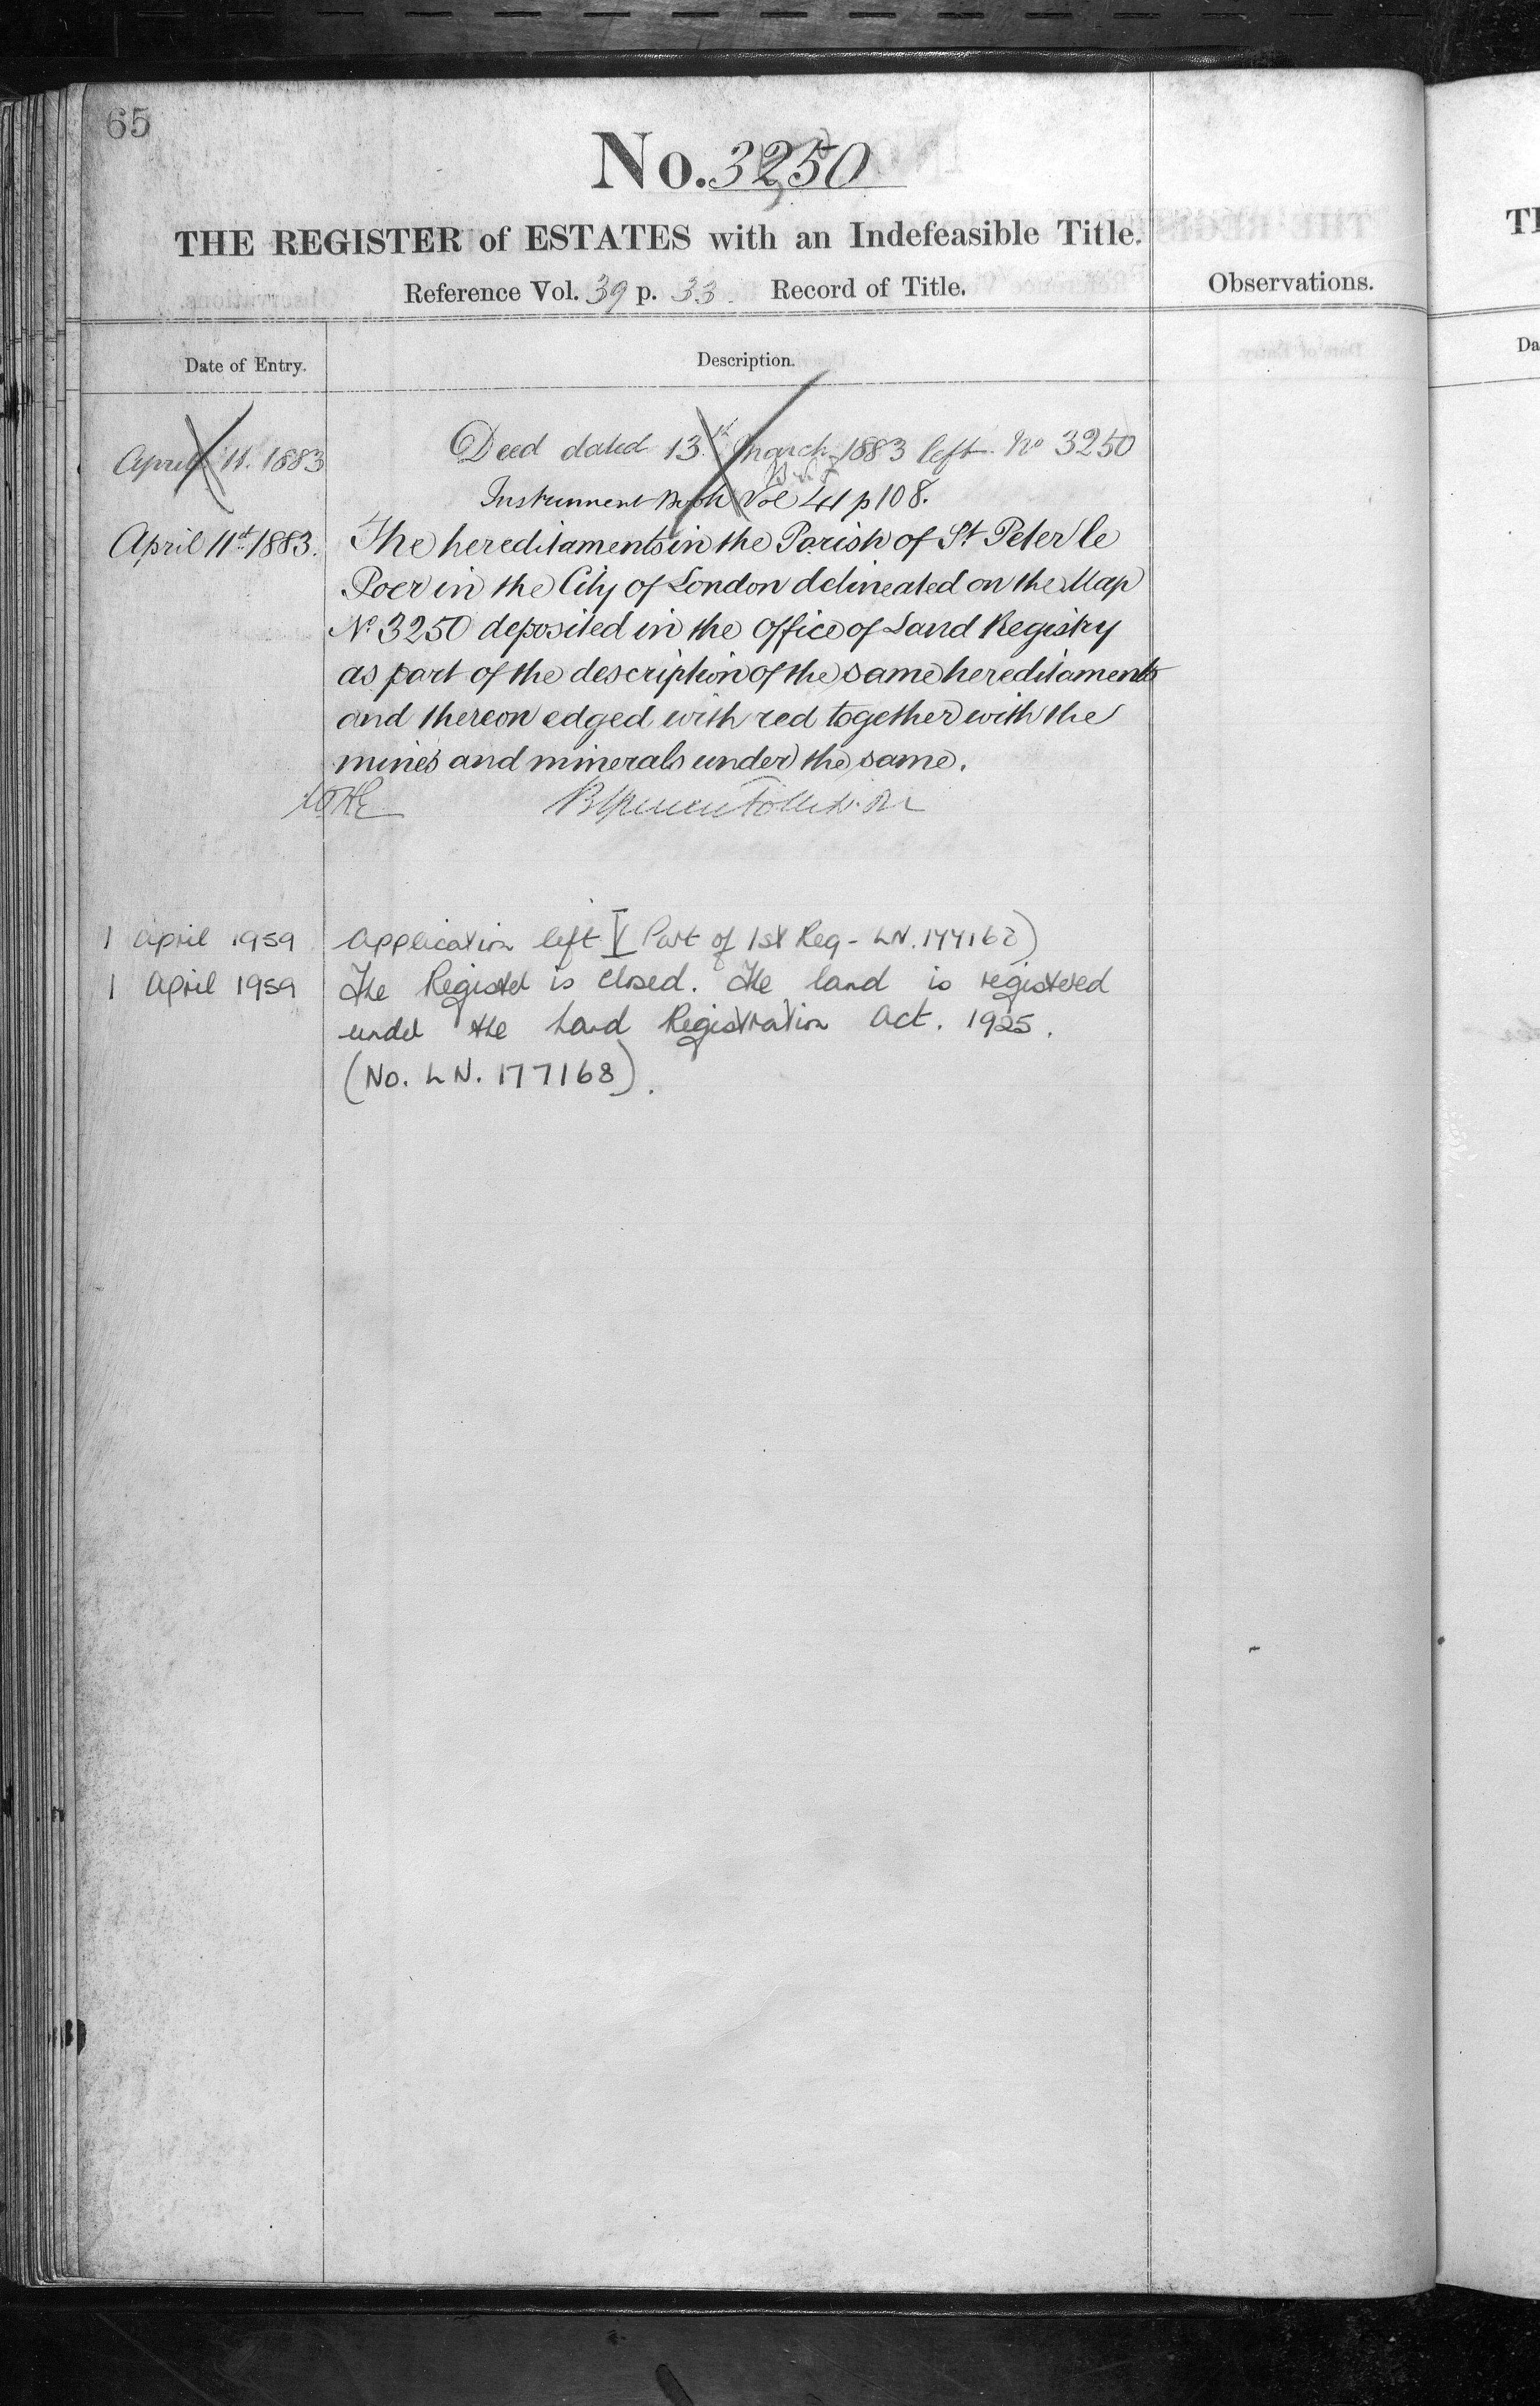 65
No. 3250
THE REGISTER of ESTATES with an Indefeasible Title.
Reference Vol. 39 p. 33. Record of Title.
Observations.
Date of Entry.
Description.
April 11. 1883
Deed dated 13th March 1883 left No 3250
Instrument Book Vol 41 p 108.
April 11th 1883.
The hereditaments in the Parish of St Peter le
Poer in the City of London delineated on the Map
No 3250 deposited in the Office of Land Registry
as part of the description of the same hereditaments
and thereon edged with red together with the
mines and minerals under the same.
1 April 1959
Application left Part of 1st Reg - LN.
1 April 1959
The Register is closed. The land is registered
under the Land Registration Act. 1925.
(No. LN. 177168).
TH
Da